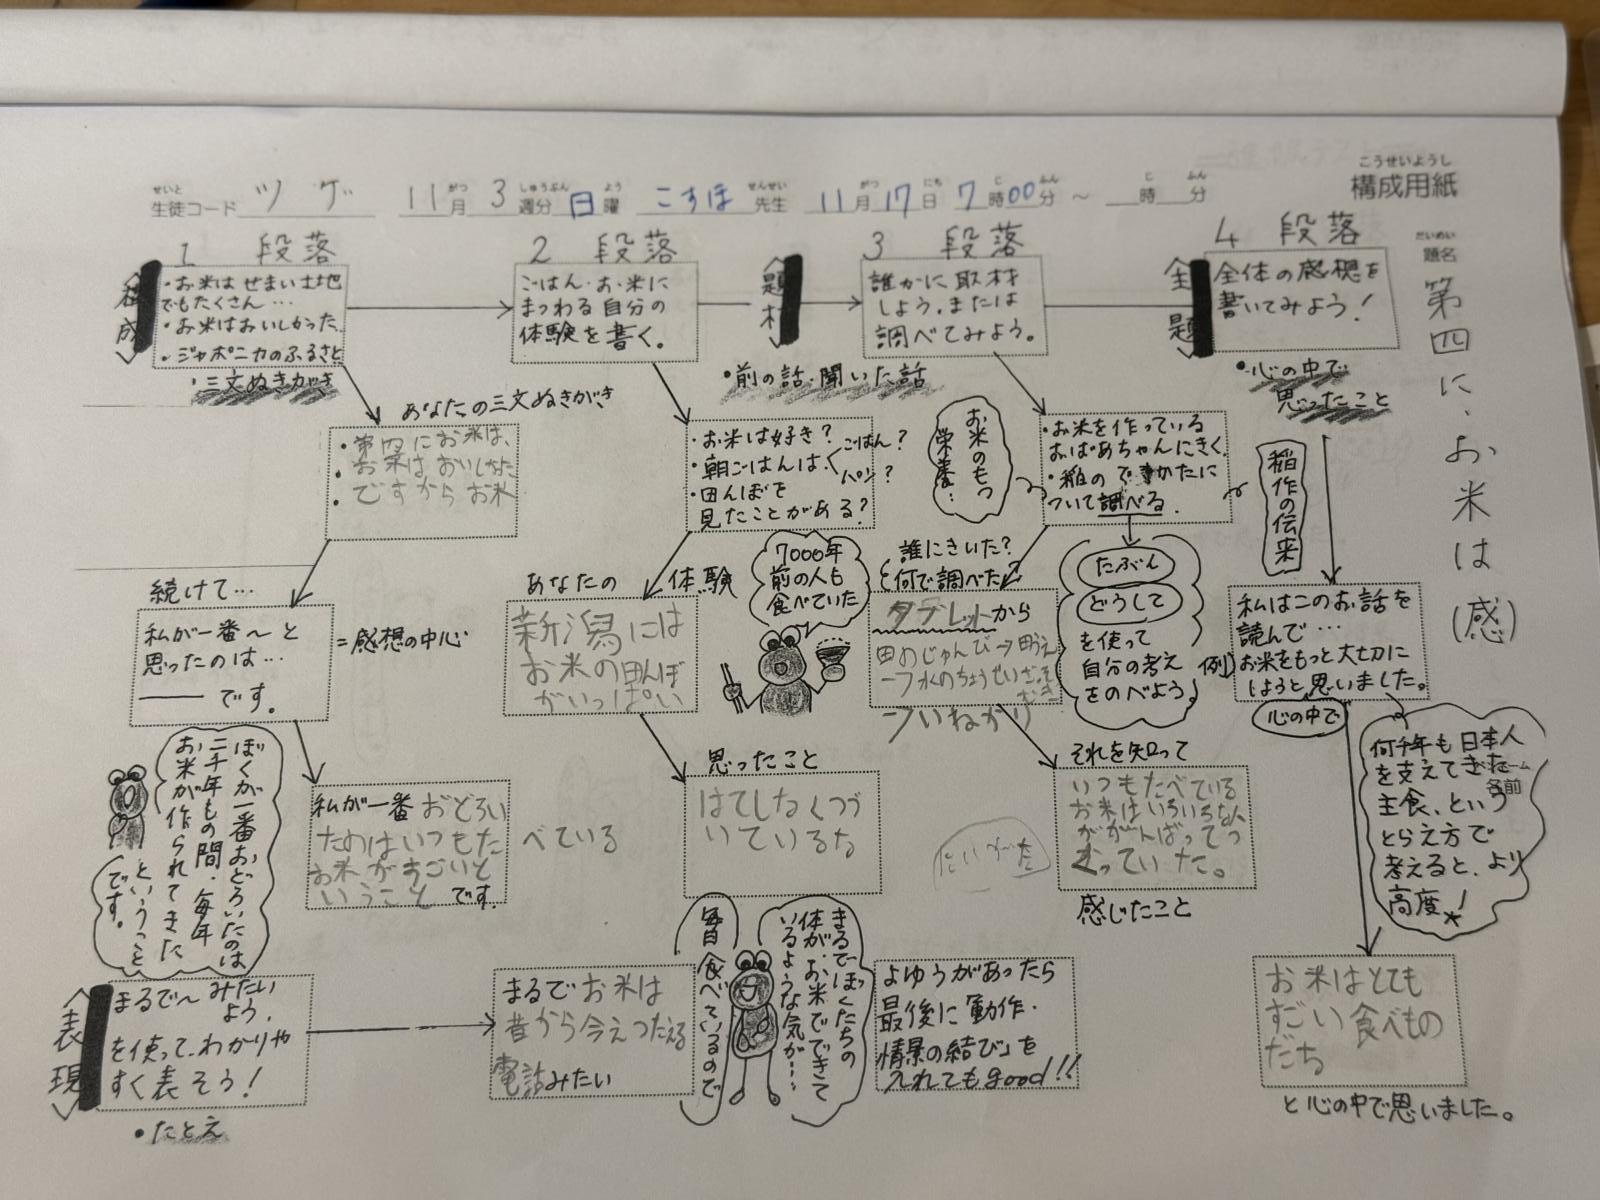 構成用紙
こうせいようし
生徒コード ツゲ 11月 3週分 日曜 こすほ先生 11月17日 7時00分 ～ 時 分
せいと がつ しゅうぶん よう せんせい がつ にち じ ふん じ ふん
題名
だいめい
第四に、お米は(感)
1 段落
<構成>
・お米はせまい土地
でもたくさん…
・お米はおいしかった。
・ジャポニカのふるさと
・三文ぬきがき
あなたの三文ぬきがき
・第四にお米は、
・お米はおいしかった
・ですからお米
続けて…
私が一番～と
思ったのは…
―― です。
=感想の中心
ぼくが一番おどろいたのは
二千年もの間、毎年
お米が作られてきた
ということ
です。
私が一番おどろい
たのはいつもた
べている
お米がすごいと
いうこと です。
<表現>
まるで～みたい
よう。
を使って、わかりや
すく表そう！
・たとえ
まるでお米は
昔から今えつたえる
電話みたい
2 段落
ごはん・お米に
まつわる自分の
体験を書く。
・お米は好き？
・朝ごはんは、ごはん？
パン？
・田んぼを
見たことがある？
あなたの 体験
新潟には
お米の田んぼ
がいっぱい
7000年
前の人も
食べていた
思ったこと
はてしなくつづ
いているな
毎日食べているので
まるでぼくたちの
体が、お米でできて
いるような気が…
<題材>
・前の話・聞いた話
3 段落
誰かに取材
しよう。または
調べてみよう。
お米のもつ
栄養…
・お米を作っている
おばあちゃんにきく。
・稲のでき かたに
ついて調べる。
稲作の伝来
誰にきいた？
何で調べた？
タブレットから
田のじゅんび→田うえ
→水のちょうせい
→いねかり
たぶん
どうして
を使って
自分の考え
をのべよう。
それを知って
いつもたべている
お米はいろいろな人
ががんばってつ
くっていた。
感じたこと
にいがた
よゆうがあったら
最後に「動作・
情景の結び」を
入れてもgood!!
<主題>
4 段落
全体の感想を
書いてみよう！
・心の中で
思ったこと
私はこのお話を
読んで…
例)お米をもっと大切に
しようと思いました。
心の中で
何千年も日本人
を支えてきた
主食、という
とらえ方で
考えると、より
高度！
名前
お米はとても
すごい食べもの
だち
と心の中で思いました。